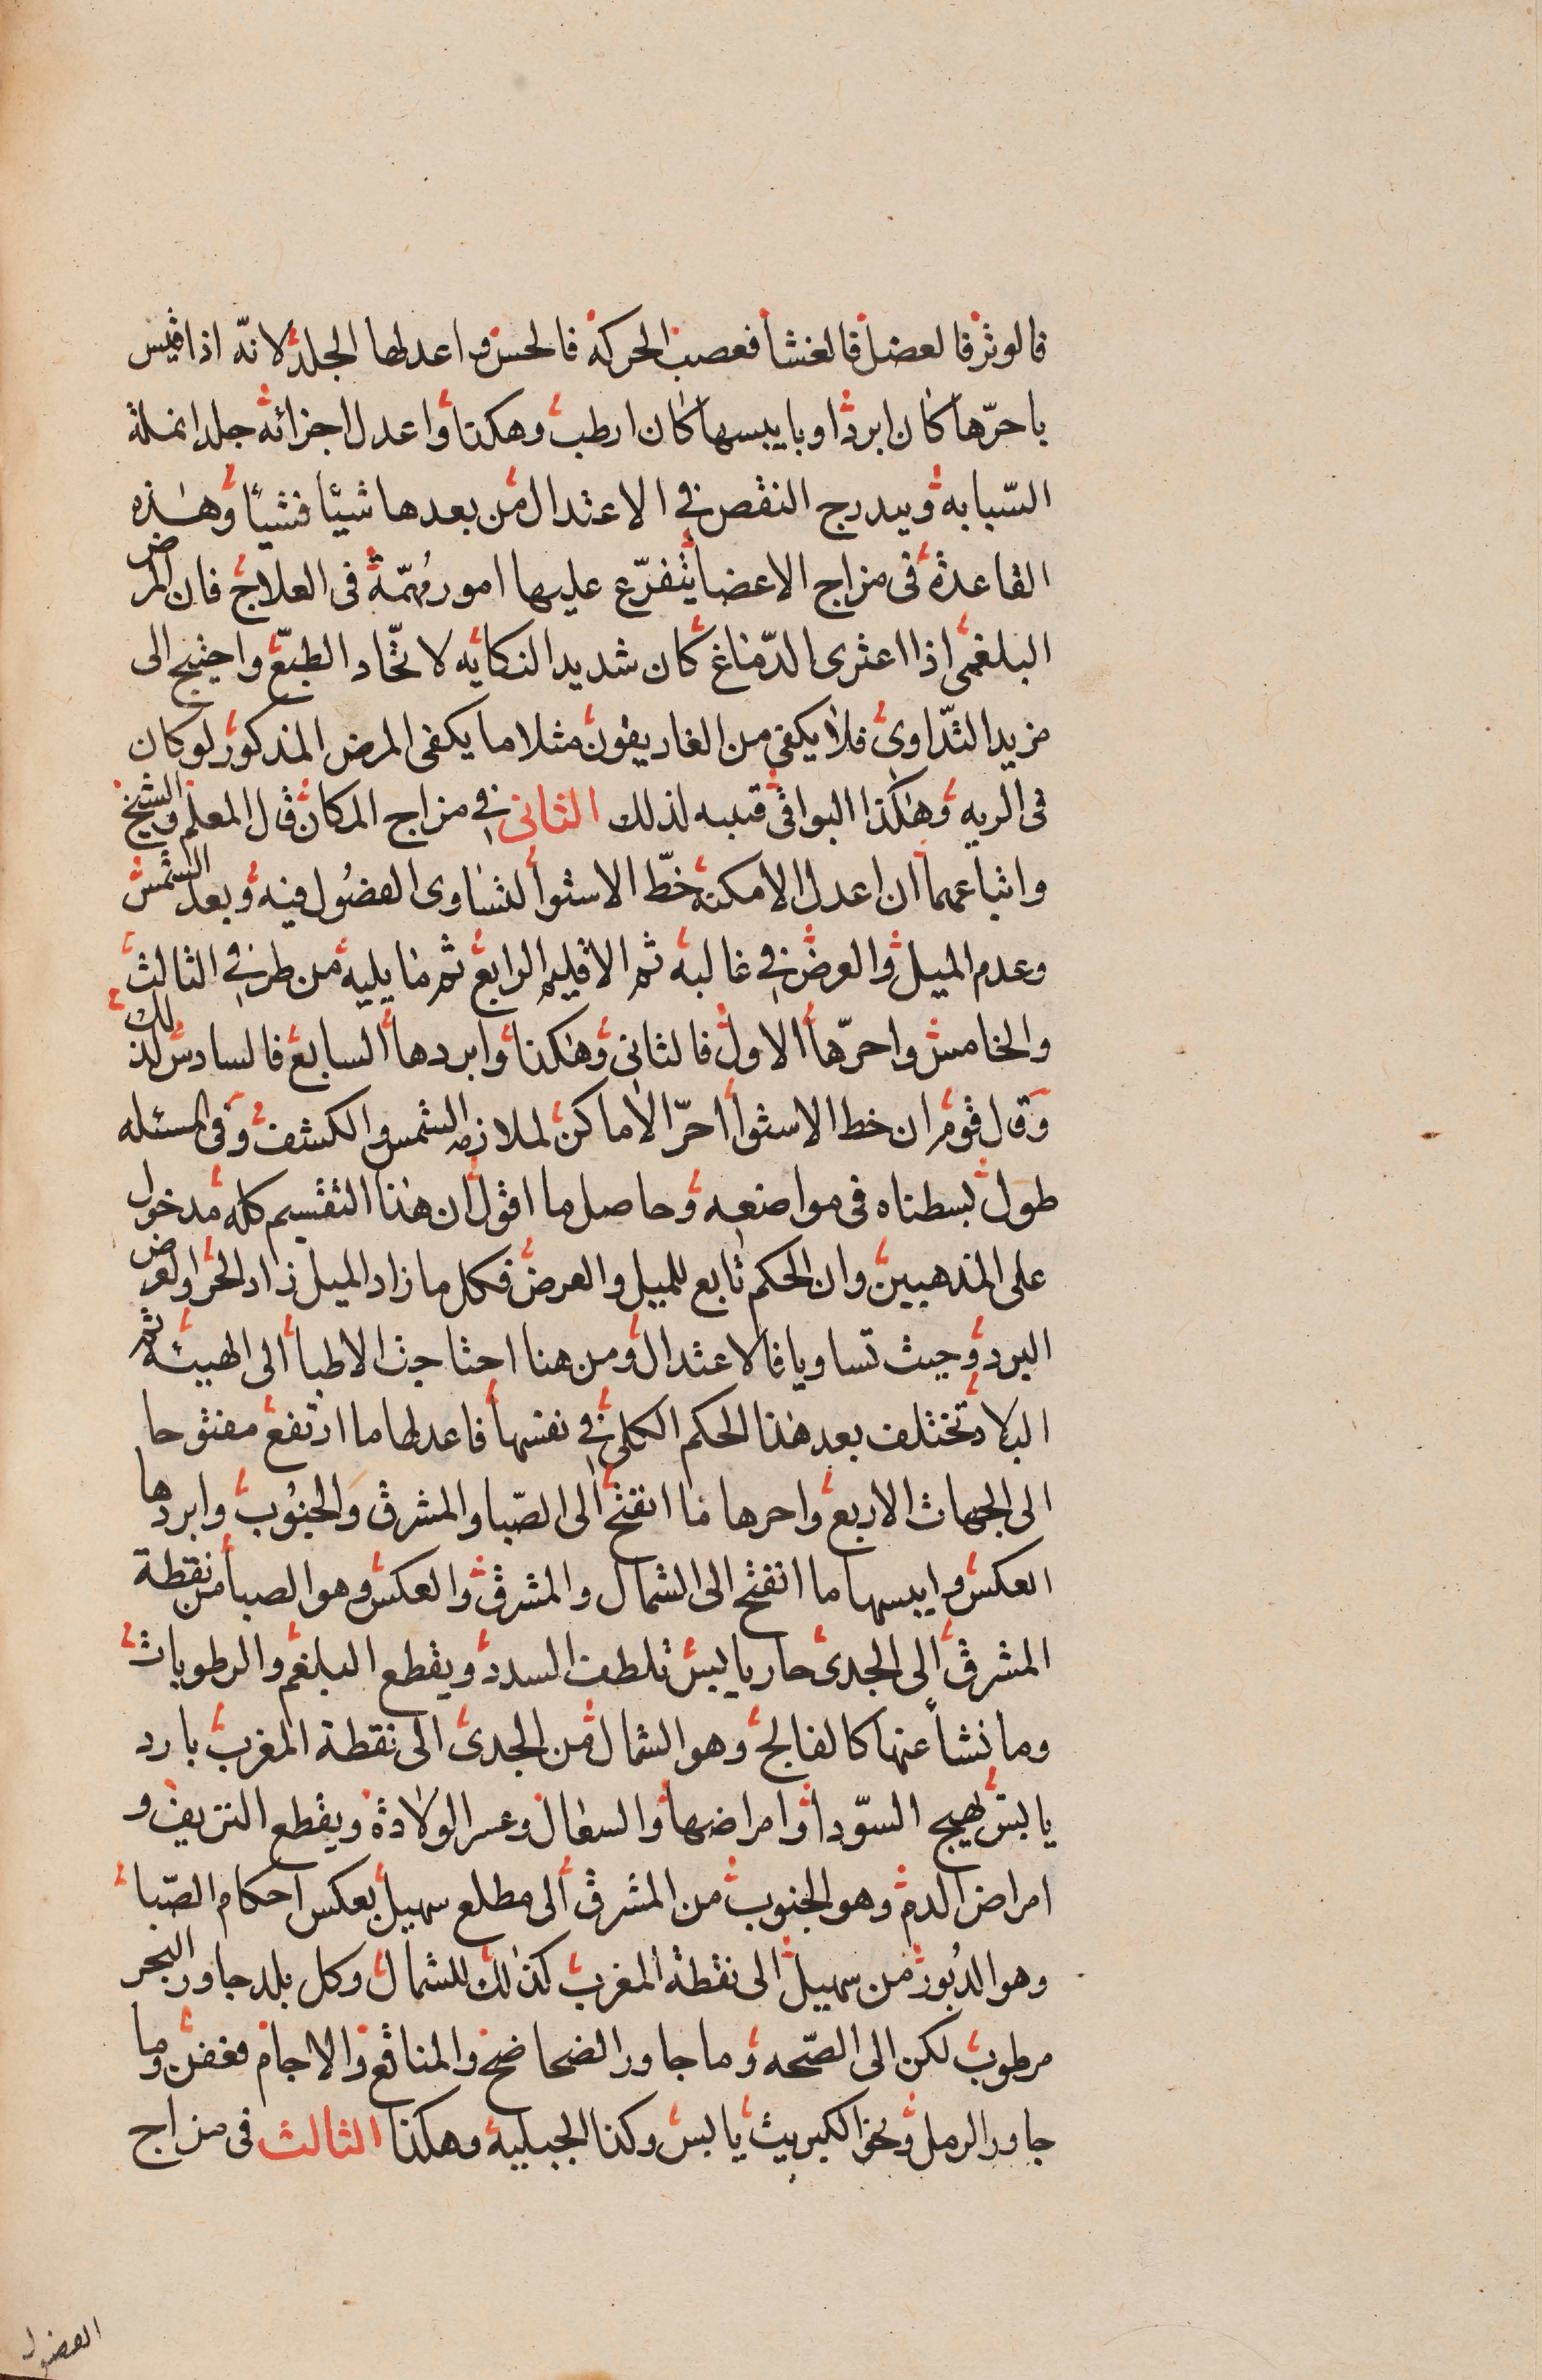 فالوتر فالعضل فالغشا فعصب الحركة فالحس واعدلها الجلد لانّه اذا قيس
باحرّها كان ابرد او بايبسها كان ارطب وهكذا واعدل اجزائه جلد انملة
السّبابه ويدرج النقص في الاعتدال من بعدها شيئا فشيئا وهذه
القاعدة فى مزاج الاعضا يتفرّع عليها امور مُهمّة فى العلاج فان المرض
البلغمى اذا اعترى الدّماغ كان شديد النكايه لاتّحاد الطبع واحتيج الى
مزيد التّداوى فلا يكفى من الغاريقون مثلا ما يكفى المرض المذكور لو كان
فى الريه وهكذا البواقى فتنبه لذلك الثانى في مزاج المكان قال المعلم والشيخ
واتباعهما ان اعدل الامكنة خطّ الاستوا لتساوى الفصُول فيه وبعد الشمس
وعدم الميل والعرض في غالبه ثم الاقليم الرابع ثم ما يليه من طرفي الثالث
والخامس واحرّها الاول فالثانى وهكذا وابردها السابع فالسادس لذلك
وقال قوم ان خط الاستوا احرّ الاماكن لملازمة الشمس والكشف وفى المسئله
طول بسطناه فى مواضعه وحاصل ما اقول ان هذا التقسيم كله مدخول
على المذهبين وان الحكم تابع للميل والعرض فكل ما زاد الميل زاد الحر او العرض
البرد وحيث تساويا فالاعتدال ومن هنا احتاجت الاطبا الى الهيئة ثم
البلاد تختلف بعد هذا الحكم الكلى في نفسها فاعدلها ما ارتفع مفتوحا
الى الجهات الاربع واحرها ما انفتح الى الصّبا والمشرق والجنُوب وابردها
العكس وايبسها ما انفتح الى الشمال والمشرق والعكس وهو الصبا من نقطة
المشرق الى الجدى حار يابس تلطف السدد ويقطع البلغم والرطوبات
وما نشا عنها كالفالج وهو الشمال من الجدى الى نقطة المغرب بارد
يابس يهيج السّودا وامراضها والسعال وعسر الولادة ويقطع النزيف و
امراض الدم وهو الجنوب من المشرق الى مطلع سهيل بعكس احكام الصّبا
وهو الدبُور من سهيل الى نقطة المغرب كذلك للشمال وكل بلد جاور البحر
مرطوب لكن الى الصّحه وما جاور الضحاضح والمناقع والاجام فعفن وما
جاور الرمل ونحو الكبريت يابس وكذا الجبلية وهكذا الثالث فى مزاج
الفصول